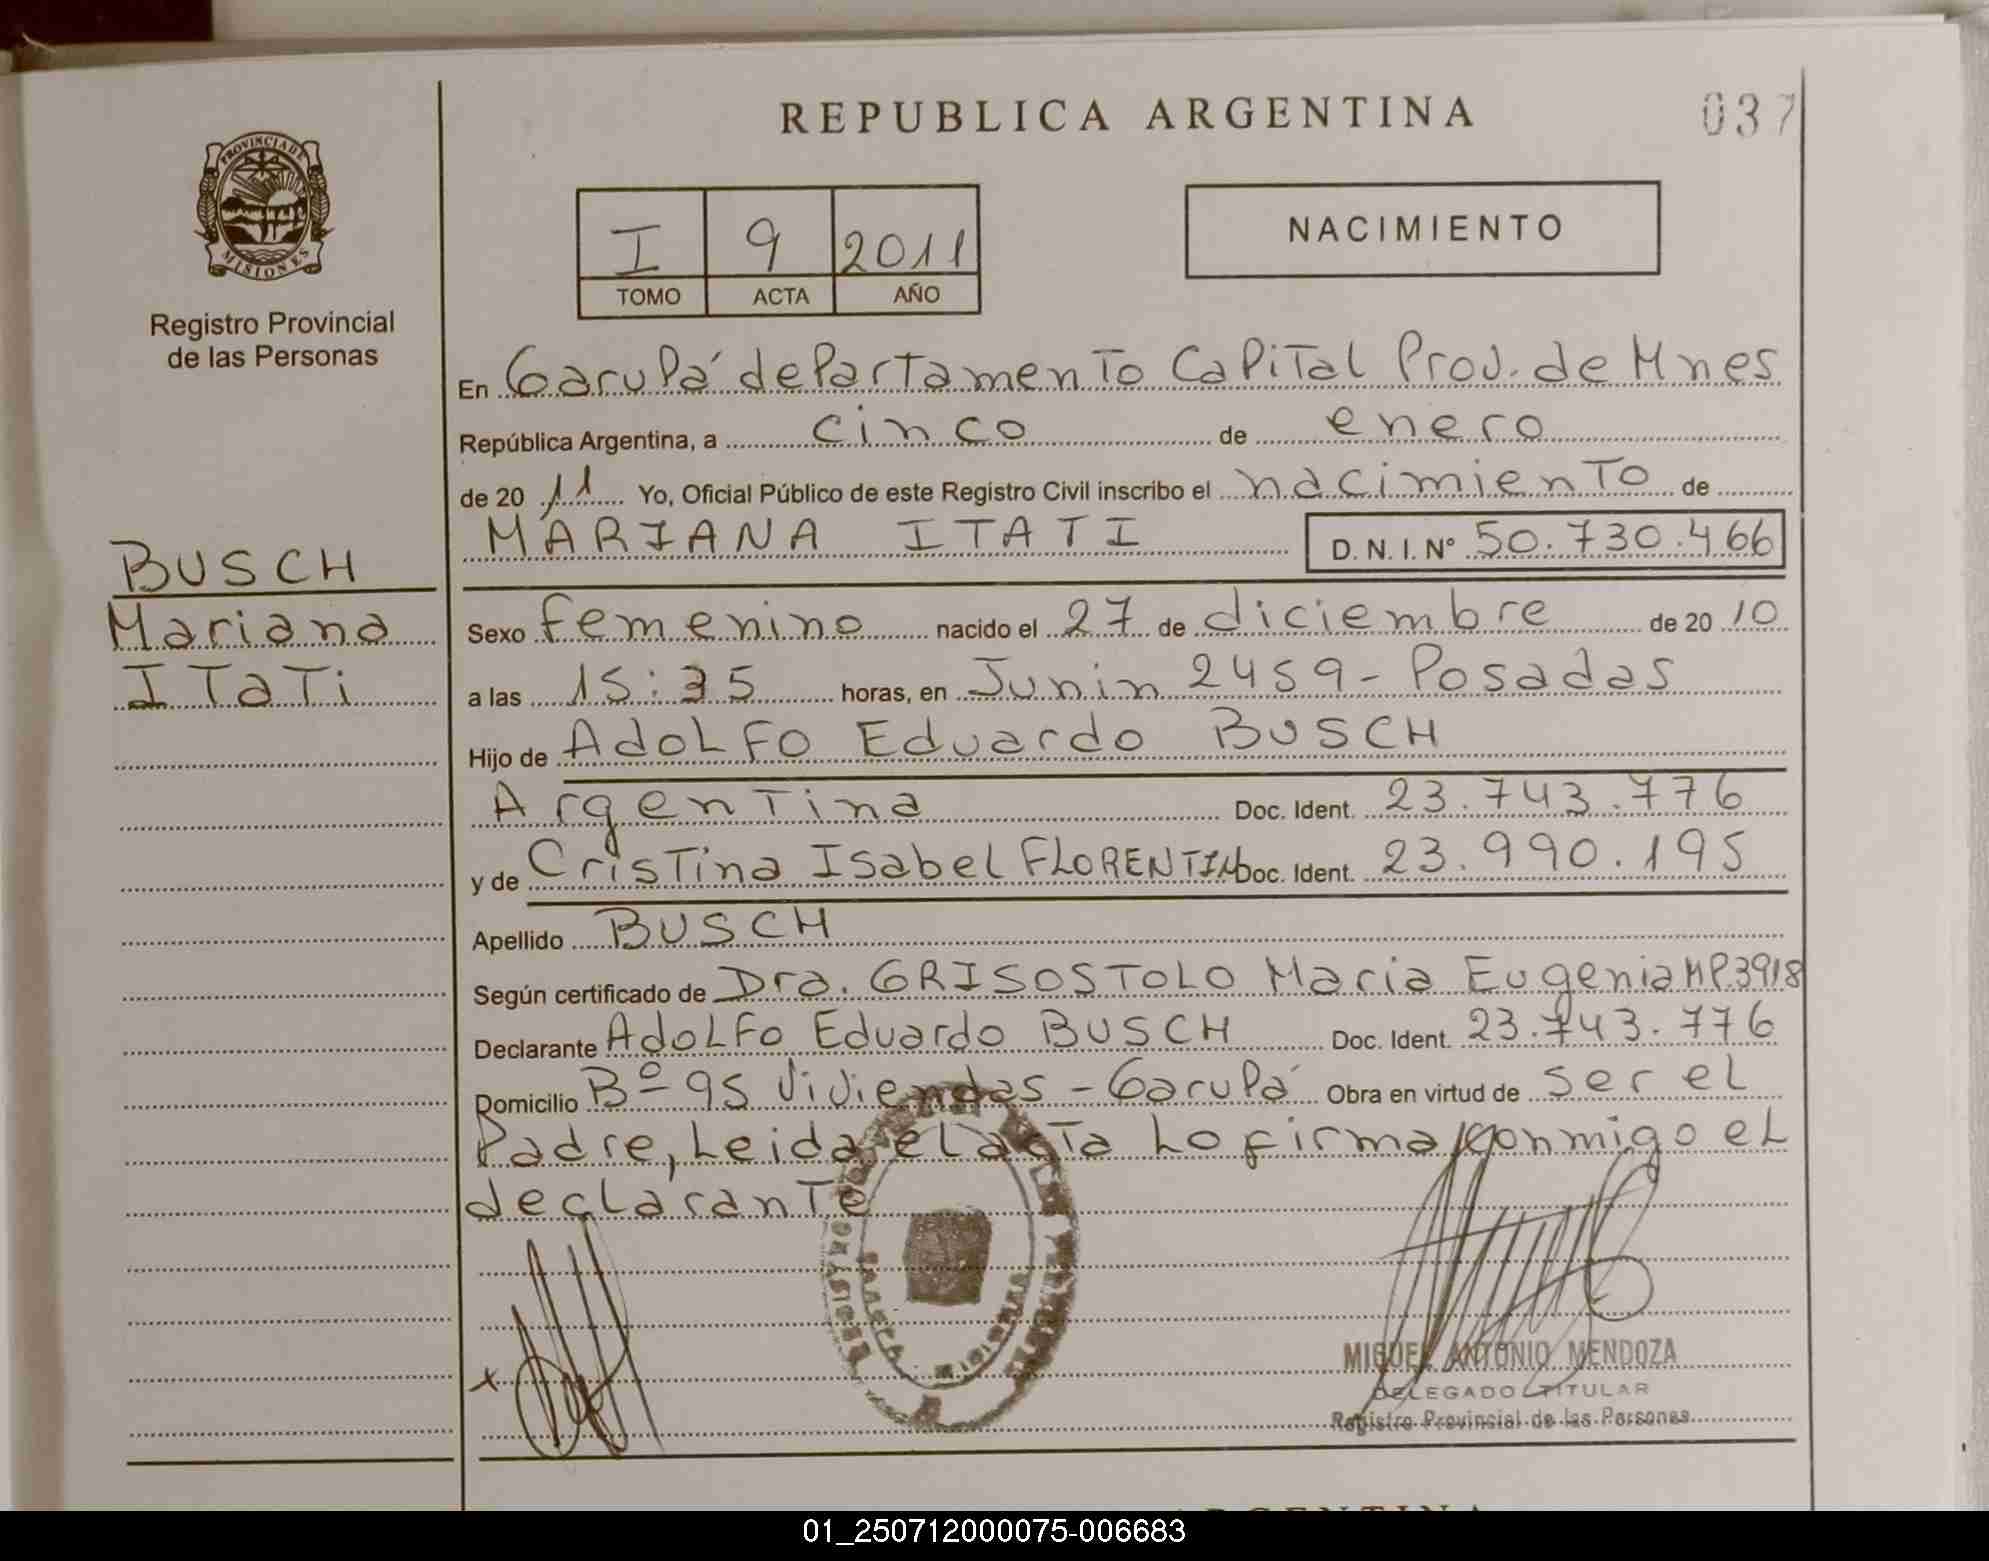 REPUBLICA ARGENTINA
037
PROVINCIA DE MISIONES
Registro Provincial
de las Personas
I 9 2011
TOMO ACTA AÑO
NACIMIENTO
En Garupá departamento Capital Prov. de Mnes
República Argentina, a cinco de enero
de 20 11 Yo, Oficial Público de este Registro Civil inscribo el nacimiento de
MARIANA ITATI D. N. I. Nº 50.730.466
BUSCH
Mariana
Itati
Sexo femenino nacido el 27 de diciembre de 20 10
a las 15:35 horas, en Junin 2459 - Posadas
Hijo de Adolfo Eduardo BUSCH
Argentina Doc. Ident. 23.743.776
y de Cristina Isabel FLORENTIN Doc. Ident. 23.990.195
Apellido BUSCH
Según certificado de Dra. GRISOSTOLO Maria Eugenia MP.3918
Declarante Adolfo Eduardo BUSCH Doc. Ident. 23.743.776
Domicilio Bº 95 Viviendas - Garupá Obra en virtud de ser el
Padre, Leida el acta Lo firma conmigo el
declarante
x
MIGUEL ANTONIO MENDOZA
DELEGADO TITULAR
Registro Provincial de las Personas
ARGENTINA
01_250712000075-006683